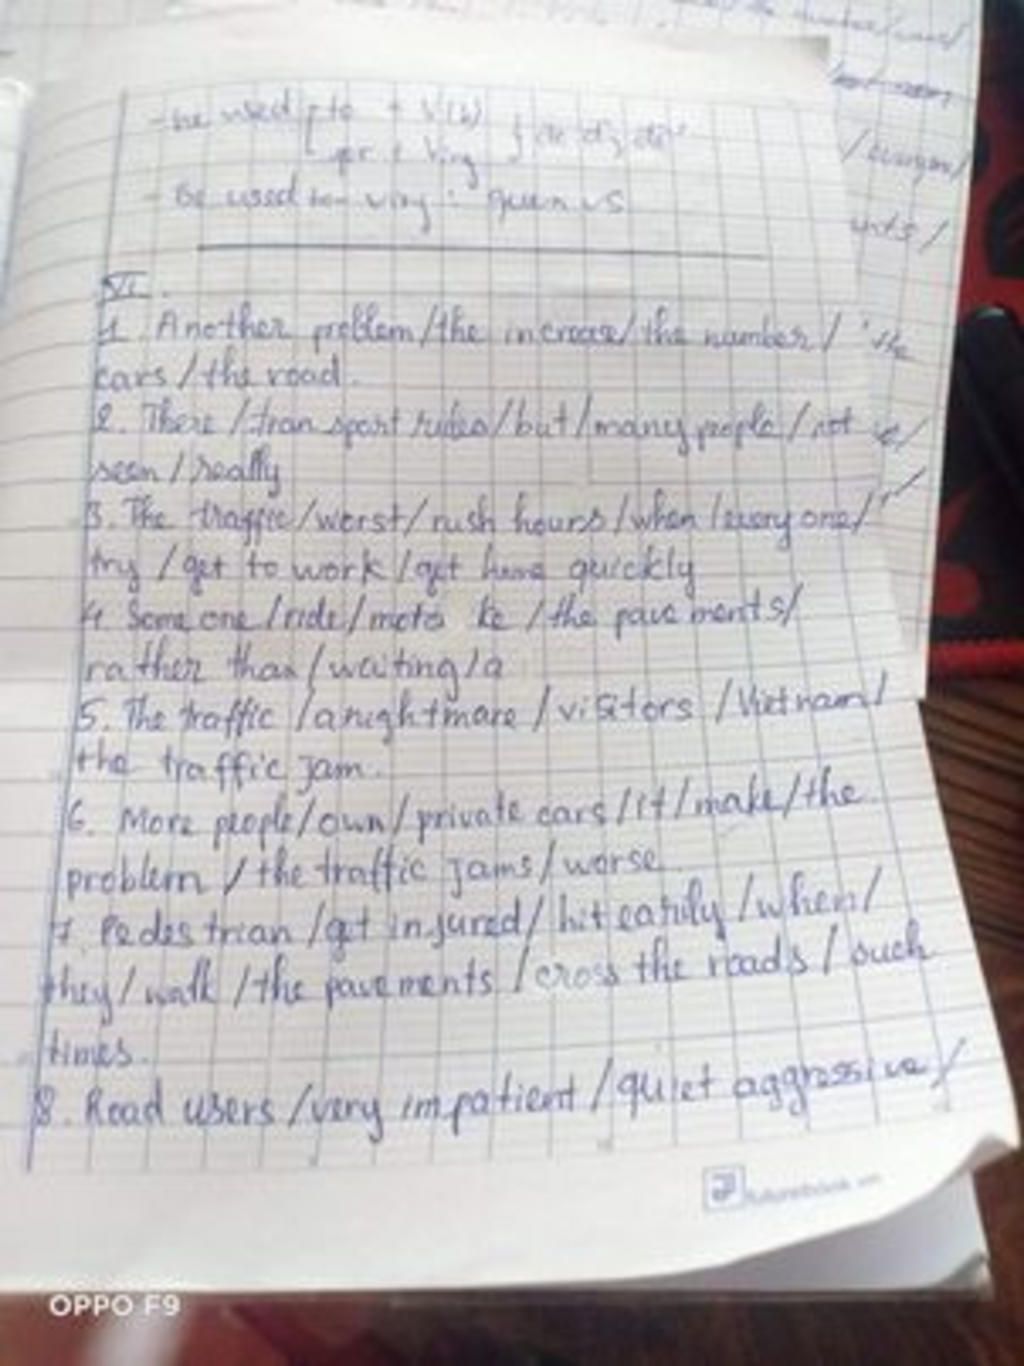 - be used to + V(b)
for + Ving
- Be used to - ving : quen vs
VI.
1. Another problem/the increase/the number/ the
cars/the road.
2. There/transport rules/but/many people/not
seen/really
3. The traffic/worst/rush hours/when/everyone/
try/get to work/get home quickly
4. Someone/ride/moto ke/the pavements/
rather than/waiting/a
5. The traffic/a nightmare/visitors/Vietnam/
the traffic jam.
6. More people/own/private cars/it/make/the
problem/the traffic jams/worse
7. Pedestrian/get injured/hit easily/when/
they/walk/the pavements/cross the roads/such
times.
8. Road users/very impatient/quiet aggressive/
OPPO F9